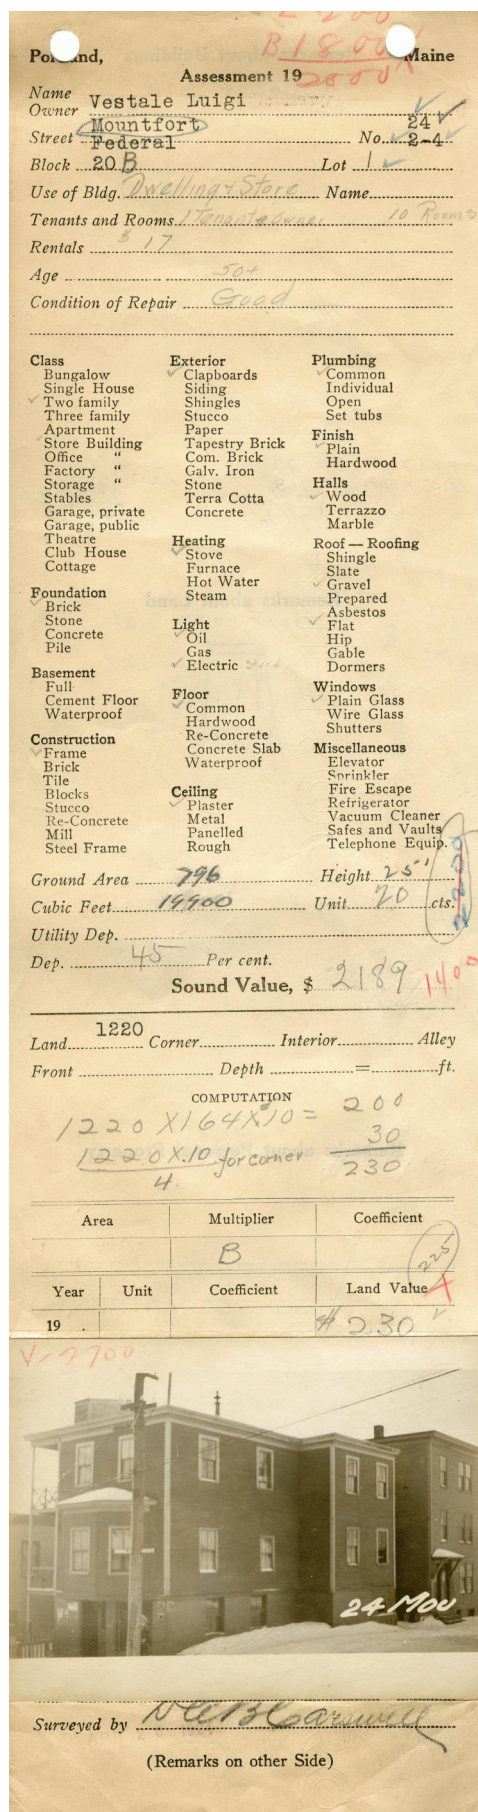 2200
B1800 X
2000
Portland, Maine
Assessment 19
Name
Owner Vestale Luigi & Mary
Mountfort 24
Street Federal No. 2-4
Block 20 B Lot 1
Use of Bldg. Dwelling & Store Name
Tenants and Rooms 1 Tenant & owner 10 Rooms
Rentals $ 17
Age 50+
Condition of Repair Good
Class
Bungalow
Single House
✓ Two family
Three family
Apartment
✓ Store Building
Office "
Factory "
Storage "
Stables
Garage, private
Garage, public
Theatre
Club House
Cottage
Foundation
✓ Brick
Stone
Concrete
Pile
Basement
Full
Cement Floor
Waterproof
Construction
✓ Frame
Brick
Tile
Blocks
Stucco
Re-Concrete
Mill
Steel Frame
Exterior
✓ Clapboards
Siding
Shingles
Stucco
Paper
Tapestry Brick
Com. Brick
Galv. Iron
Stone
Terra Cotta
Concrete
Heating
✓ Stove
Furnace
Hot Water
Steam
Light
✓ Oil
Gas
✓ Electric Store
Floor
✓ Common
Hardwood
Re-Concrete
Concrete Slab
Waterproof
Ceiling
✓ Plaster
Metal
Panelled
Rough
Plumbing
✓ Common
Individual
Open
Set tubs
Finish
✓ Plain
Hardwood
Halls
✓ Wood
Terrazzo
Marble
Roof — Roofing
Shingle
Slate
✓ Gravel
Prepared
Asbestos
✓ Flat
Hip
Gable
Dormers
Windows
✓ Plain Glass
Wire Glass
Shutters
Miscellaneous
Elevator
Sprinkler
Fire Escape
Refrigerator
Vacuum Cleaner
Safes and Vaults
Telephone Equip.
Ground Area 796 Height 25'
Cubic Feet 19900 Unit 20 cts.
2200
Utility Dep.
Dep. 45 Per cent.
Sound Value, $ 2189 1400
Land 1220 Corner Interior Alley
Front Depth = ft.
COMPUTATION
1220 X 164 X 10 = 200
30
1220 X .10 for corner 230
4
Area Multiplier Coefficient
B
225
Year Unit Coefficient Land Value X
19 . $ 230
24 Mou
Surveyed by
(Remarks on other Side)